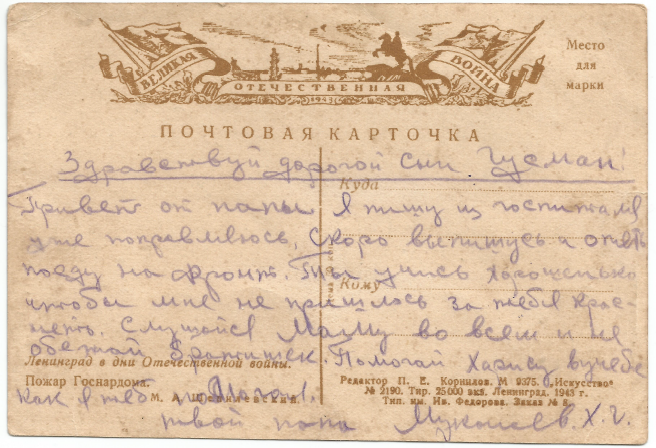 ВЕЛИКАЯ
ОТЕЧЕСТВЕННАЯ
ВОЙНА
1943
Место
для
марки
ПОЧТОВАЯ КАРТОЧКА
Здравствуй дорогой сын Гусман!
Куда
Привет от папы я пишу из госпиталя
уже поправляюсь, скоро выпишусь и опять
поеду на фронт. Ты учись хорошенько
Кому
чтобы мне не пришлось за тебя крас-
неть. Слушайся Маму во всем и не
обежай братишек. Помогай Харису в учебе
Ленинград в дни Отечественной войны.
Пожар Госнардома.
М. А.
Редактор П. Е. Корнилов. М 9375. „Искусство"
№ 2190. Тир. 25 000 экз. Ленинград. 1943 г.
Тип. им. Ив. Федорова. Заказ № 8.
как я тебе
твой папа Х. Г.